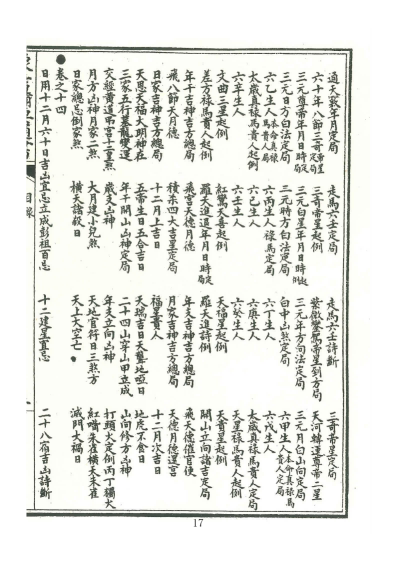 通天竅年月定局 走馬六壬定局 走馬六壬詩斷 三奇帝星定局
六十年八節三奇定局 三奇帝星起例 紫微鑾駕帝星到方局 天河轉運尊帝二星
三元尊帝年月日時定局 三元白星年月日時起例 三元年方白法定局 三元月白山向定局
三元日方白法定局 三元時方白法定局 白中凶煞定局 六甲生人本命真祿馬貴人定局
六乙生人本命真祿馬貴人局 六丙生人祿馬定局 六丁生人 六戊生人
太歲真祿馬貴人起例 六己生人 六庚生人 太歲真祿馬貴人定局
六辛生人 六壬生人 六癸生人 天星祿馬貴人起例
文曲三星起例 紅鸞天喜起例 天福星起例 天貴星起例
差方祿馬貴人起例 羅天進道年月日時定局 羅天進詩例 開山立向諸吉定局
年干吉神吉方總局 飛宮天德月德 年支吉神吉方總局 飛天德催官使
飛八節天月德 積禾四大吉星定局 月家吉神吉方總局 天德月德還宮
日家吉神吉方總局 十二月上吉日 福星貴人 十二月次吉日
天恩天福大明神在 五帝生日五合吉日 天瑞吉日天聾地啞日 地虎不食日
三家五行墓龍變運 年干開山凶神定局 二十四山穿山甲立成 山向修方凶神
交經黃道吊宮十二煞 歲支凶神 年支立向凶神 打頭火定例丙丁獨火
月方凶神月家二煞 大月建小兒煞 天地官行日三煞方 紅嘴朱雀橫天朱雀
日家總忌倒家煞 橫天諸殺日 天上大空亡 滅門大禍日
●卷之十四
日用十二月六十日吉凶宜忌立成彭祖百忌 十二建星宜忌 二十八宿吉凶詩斷
目錄
17